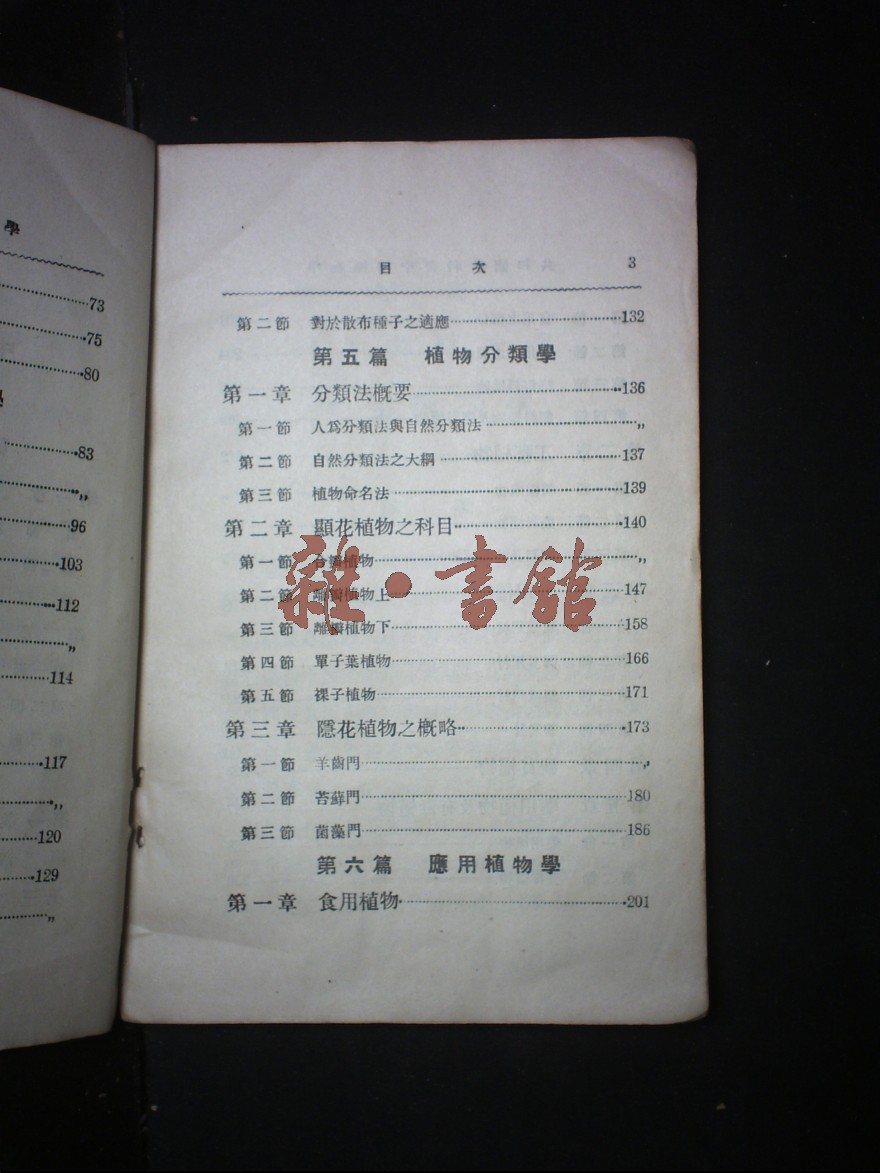 學
73
75
80
學
83
„
96
103
112
„
114
117
„
120
129
„
目 次 3
第二節 對於散布種子之適應 132
第五篇 植物分類學
第一章 分類法概要 136
第一節 人爲分類法與自然分類法 „
第二節 自然分類法之大綱 137
第三節 植物命名法 139
第二章 顯花植物之科目 140
第一節 合瓣植物 „
第二節 離瓣植物上 147
第三節 離瓣植物下 158
第四節 單子葉植物 166
第五節 裸子植物 171
第三章 隱花植物之槪略 173
第一節 羊齒門 „
第二節 苔蘚門 180
第三節 菌藻門 186
第六篇 應用植物學
第一章 食用植物 201
雜·書館